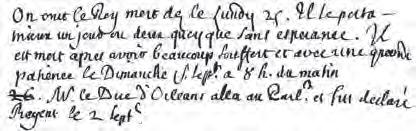 On crut le Roy mort de le Lundy 25. Il se porta
mieux un jour ou deux quoyque sans esperance. Il
est mort apres avoir beaucoup souffert et avec une grande
patience le Dimanche 1 Sept. a 8 h. du matin
26. Mr. le Duc d'Orleans alla au Parl.t et fut declaré
Regent le 2 Sept.